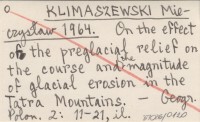 KLIMASZEWSKI Mie-
czysław 1964. On the effect
of the preglacial relief on
the course and the magnitude
of glacial erosion in the
Tatra Mountains. – Geogr.
Polon. 2: 11-21, il.